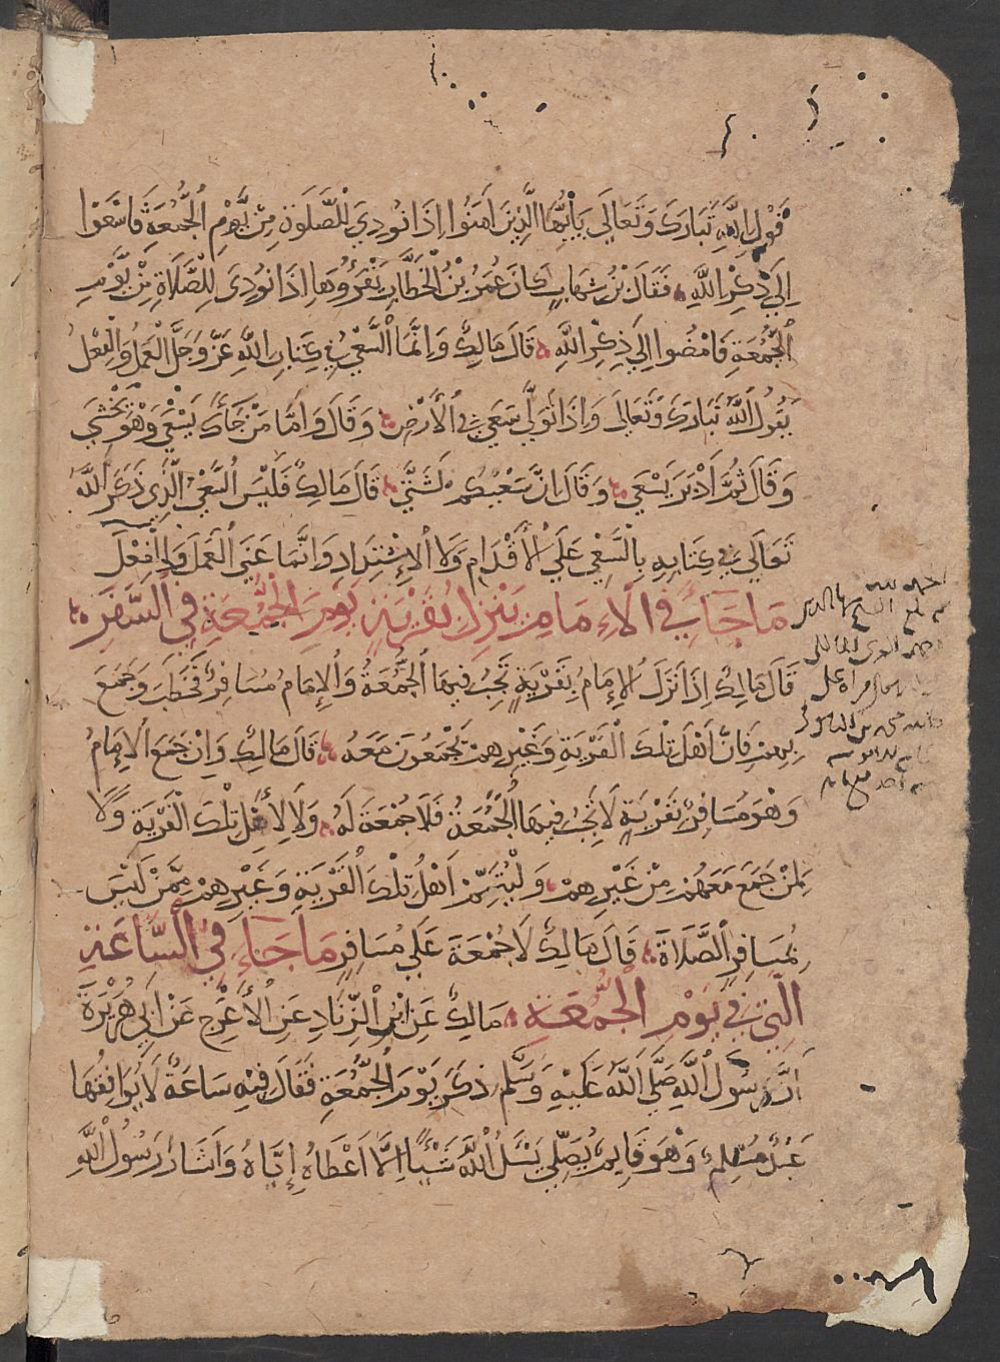 قَوْلِ اللَّهِ تَبَارَكَ وَتَعَالَى يَأَيُّهَا الَّذِينَ ءَامَنُوا إِذَا نُودِيَ لِلصَّلَوٰةِ مِنْ يَّوْمِ الْجُمُعَةِ فَاسْعَوْا
إِلَى ذِكْرِ اللَّهِ فَقَالَ ابْنُ شِهَابٍ كَانَ عُمَرُ بْنُ الْخَطَّابِ يَقْرَؤُهَا إِذَا نُودِيَ لِلصَّلَاةِ مِنْ يَّوْمِ
الْجُمُعَةِ فَامْضُوا إِلَى ذِكْرِ اللَّهِ قَالَ مَالِكٌ وَإِنَّمَا السَّعْيُ فِي كِتَابِ اللَّهِ عَزَّ وَجَلَّ الْعَمَلُ وَالْفِعْلُ
يَقُولُ اللَّهُ تَبَارَكَ وَتَعَالَى وَإِذَا تَوَلَّى سَعَى فِي الْأَرْضِ وَقَالَ وَأَمَّا مَنْ جَاءَكَ يَسْعَى وَهْوَ يَخْشَى
وَقَالَ ثُمَّ أَدْبَرَ يَسْعَى وَقَالَ إِنَّ سَعْيَكُمْ لَشَتَّى قَالَ مَالِكٌ فَلَيْسَ السَّعْيُ الَّذِي ذَكَرَ اللَّهُ
تَعَالَى فِي كِتَابِهِ بِالسَّعْيِ عَلَى الْأَقْدَامِ وَلَا الْإِشْتِدَادِ وَإِنَّمَا عَنَى الْعَمَلَ وَالْفِعْلَ
مَا جَاءَ فِي الْإِمَامِ يَنْزِلُ بِقَرْيَةٍ يَوْمَ الْجُمُعَةِ فِي السَّفَرِ
قَالَ مَالِكٌ إِذَا نَزَلَ الْإِمَامُ بِقَرْيَةٍ تَجِبُ فِيهَا الْجُمُعَةُ وَالْإِمَامُ مُسَافِرٌ فَخَطَبَ وَجَمَعَ
بِهِمْ فَإِنَّ أَهْلَ تِلْكَ الْقَرْيَةِ وَغَيْرِهِمْ يُجَمِّعُونَ مَعَهُ قَالَ مَالِكٌ وَإِنْ جَمَعَ الْإِمَامُ
وَهْوَ مُسَافِرٌ بِقَرْيَةٍ لَا تَجِبُ فِيهَا الْجُمُعَةُ فَلَا جُمْعَةَ لَهُ وَلَا لِأَهْلِ تِلْكَ الْقَرْيَةِ وَلَا
لِمَنْ جَمَعَ مَعَهُمْ مِنْ غَيْرِهِمْ وَلْيُتَمِّمْ أَهْلُ تِلْكَ الْقَرْيَةِ وَغَيْرِهِمْ مِمَّنْ لَيْسَ
بِمُسَافِرٍ الصَّلَاةَ قَالَ مَالِكٌ لَا جُمْعَةَ عَلَى مُسَافِرٍ مَا جَاءَ فِي السَّاعَةِ
الَّتِي فِي يَوْمِ الْجُمُعَةِ مَالِكٌ عَنْ أَبِي الزِّنَادِ عَنِ الْأَعْرَجِ عَنْ أَبِي هُرَيْرَةَ
أَنَّ رَسُولَ اللَّهِ صَلَّى اللَّهُ عَلَيْهِ وَسَلَّم ذَكَرَ يَوْمَ الْجُمُعَةِ فَقَالَ فِيهِ سَاعَةٌ لَا يُوَافِقُهَا
عَبْدٌ مُسْلِمٌ وَهْوَ قَايِمٌ يُصَلِّي يَسْئَلُ اللَّهَ شَيْئًا إِلَّا أَعْطَاهُ إِيَّاهُ وَأَشَارَ رَسُولُ اللَّهِ